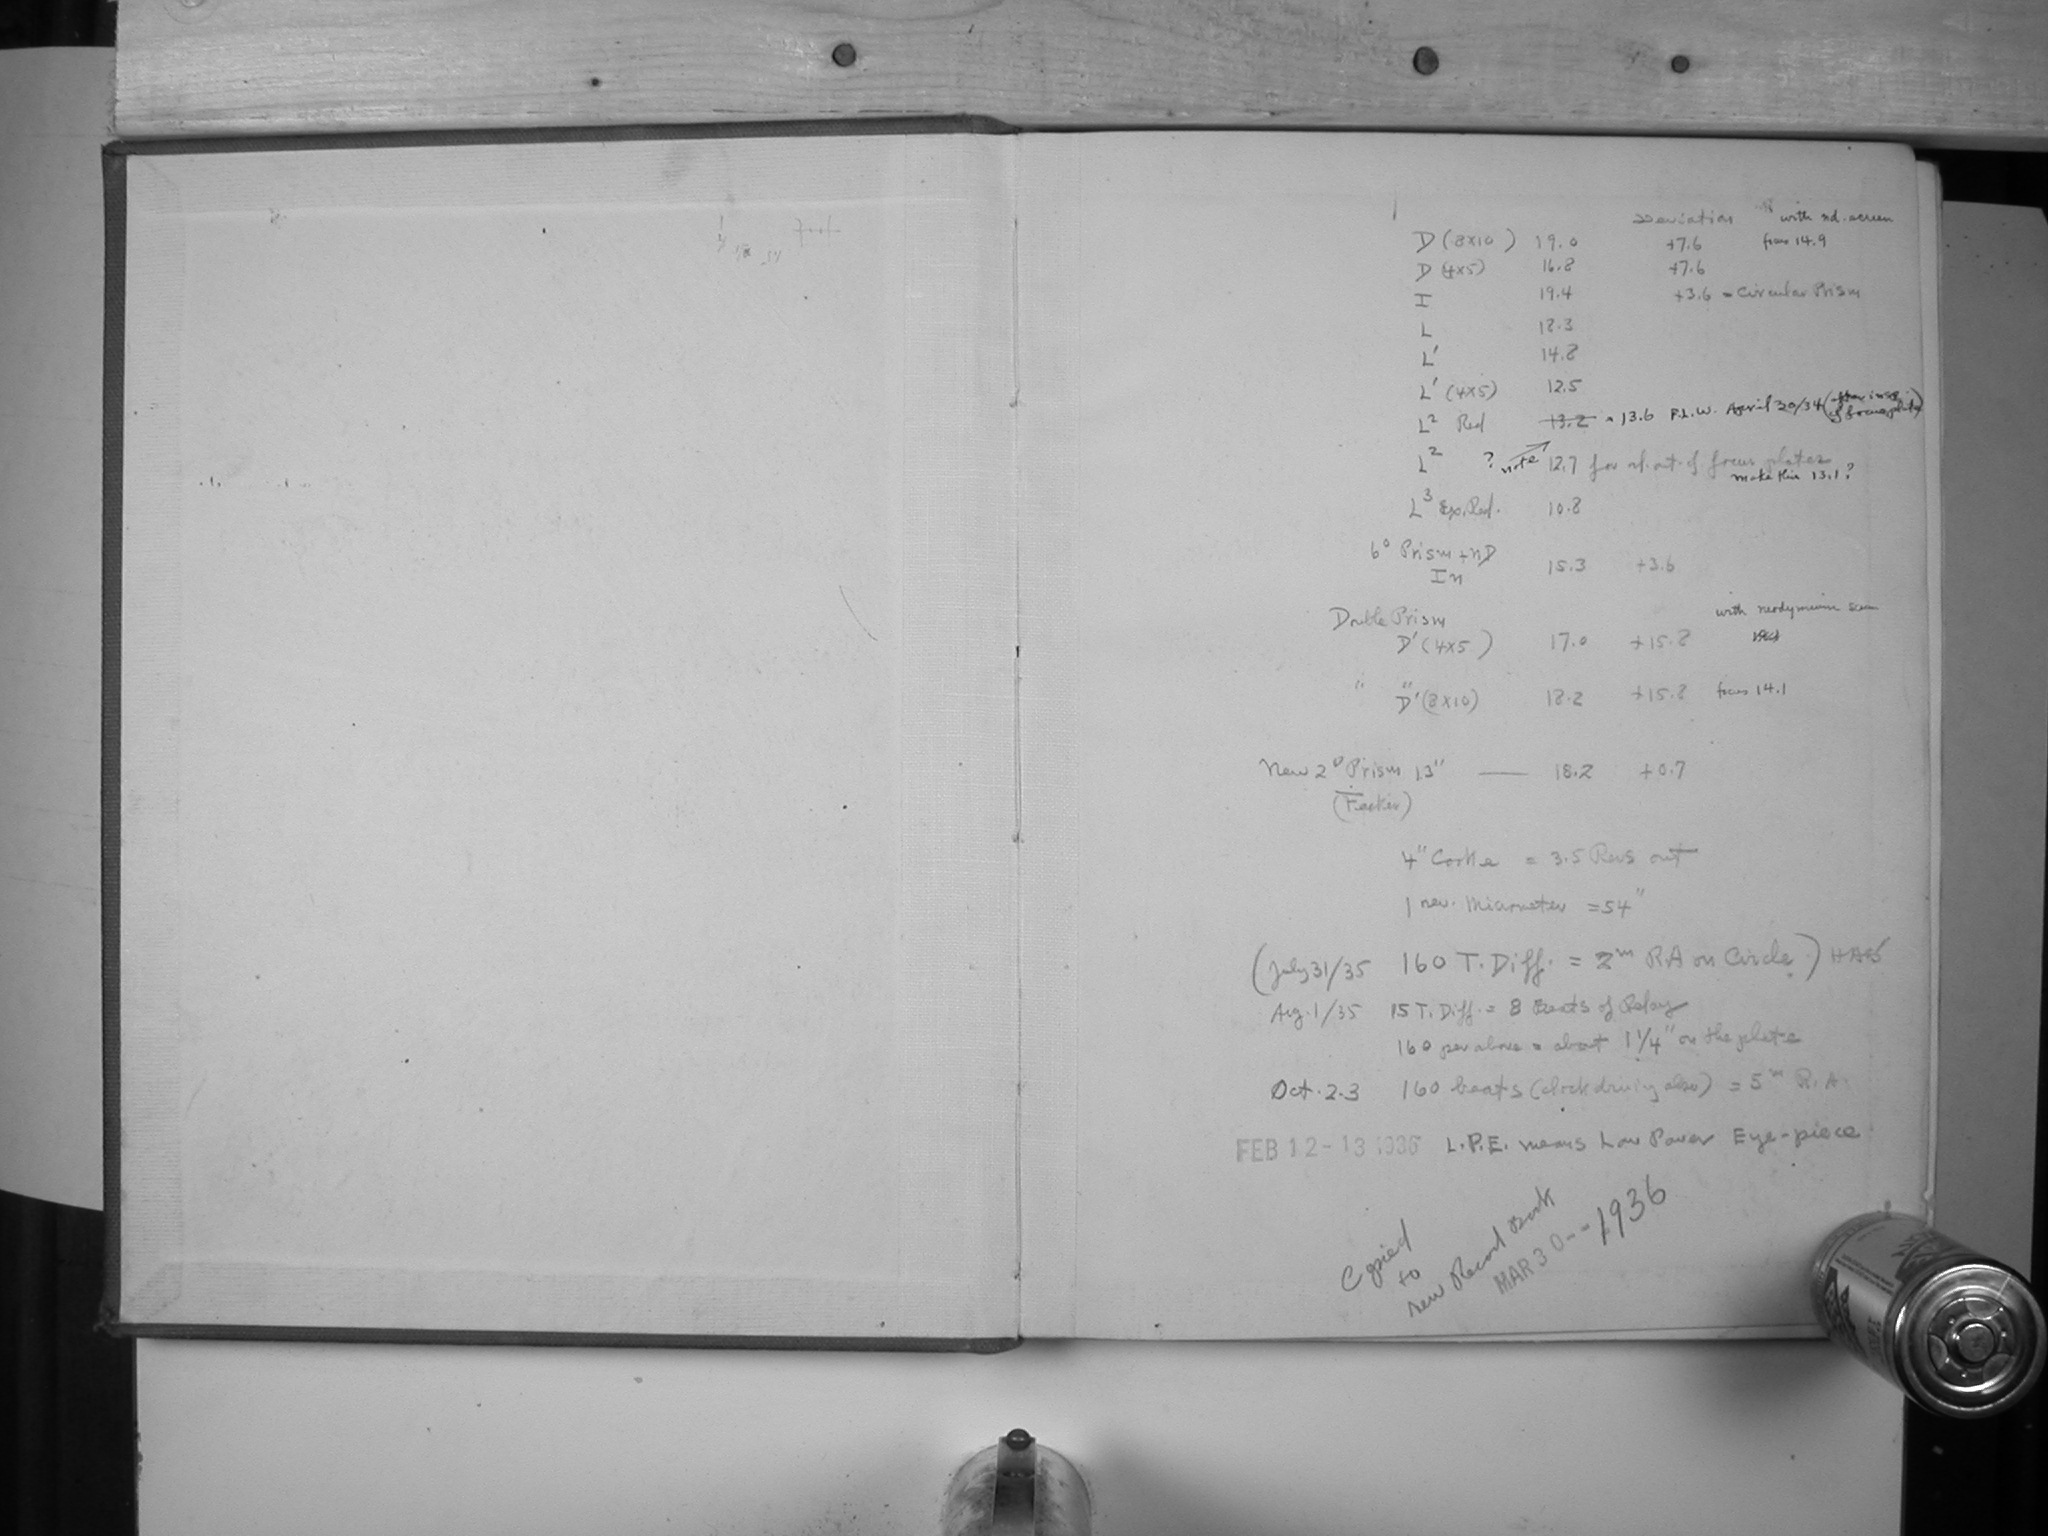 Deviation with nd. screen
D (8x10) 19.0 +7.6 focus 14.9
D (4x5) 16.8 +7.6
I 19.4 +3.6 = Circular Prism
L 18.3
L' 14.8
L' (4x5) 12.5
L² Red 13.2 = 13.6 F.L.W. April 30/34 (after insp. of focus plate)
L² ? note 12.7 for out of focus plates
make this 13.1?
L³ Ex. Red. 10.8
6° Prism + nD
In 15.3 +3.6
Double Prism with neodymium
D' (4x5) 17.0 +15.8
" " D' (8x10) 18.2 +15.8 focus 14.1
New 2° Prism 13" — 18.2 +0.7
(Fecker)
4" Cooke = 3.5 Revs out
1 rev. Micrometer = 54"
(July 31/35 160 T. Diff. = 2ᵐ RA on Circle.)
Aug. 1/35 15 T. Diff. = 8 Beats of Relay
160 per above = about 1 1/4" on the plate
Oct. 2-3 160 beats (clock driving also) = 5ᵐ R.A.
FEB 12-13 1936 L.P.E. means Low Power Eye-piece
Copied
to
new Record Book
MAR 30 - 1936